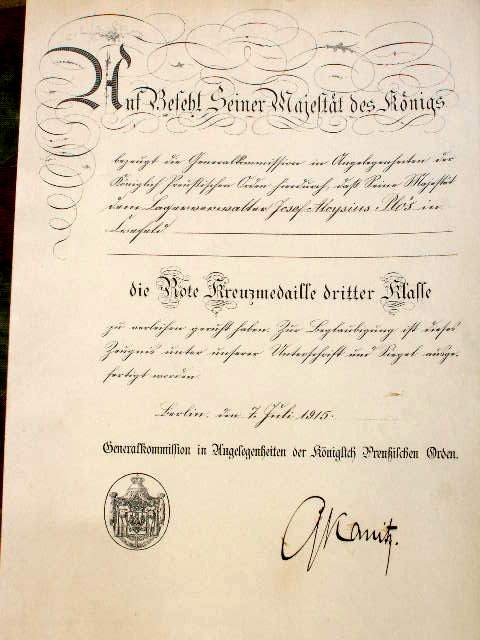 Auf Befehl Seiner Majestät des Königs
bezeugt die Generalkommission in Angelegenheiten der
Königlich Preußischen Orden hierdurch, daß Seine Majestät
dem Lagerverwalter Josef Aloysius Plös in
die Rote Kreuzmedaille dritter Klasse
zu verleihen geruht haben. Zur Beglaubigung ist dieses
Zeugnis unter unserer Unterschrift und Siegel ausge-
fertigt worden.
Berlin, den 7. Juli 1915.
Generalkommission in Angelegenheiten der Königlich Preußischen Orden.
Kanitz.